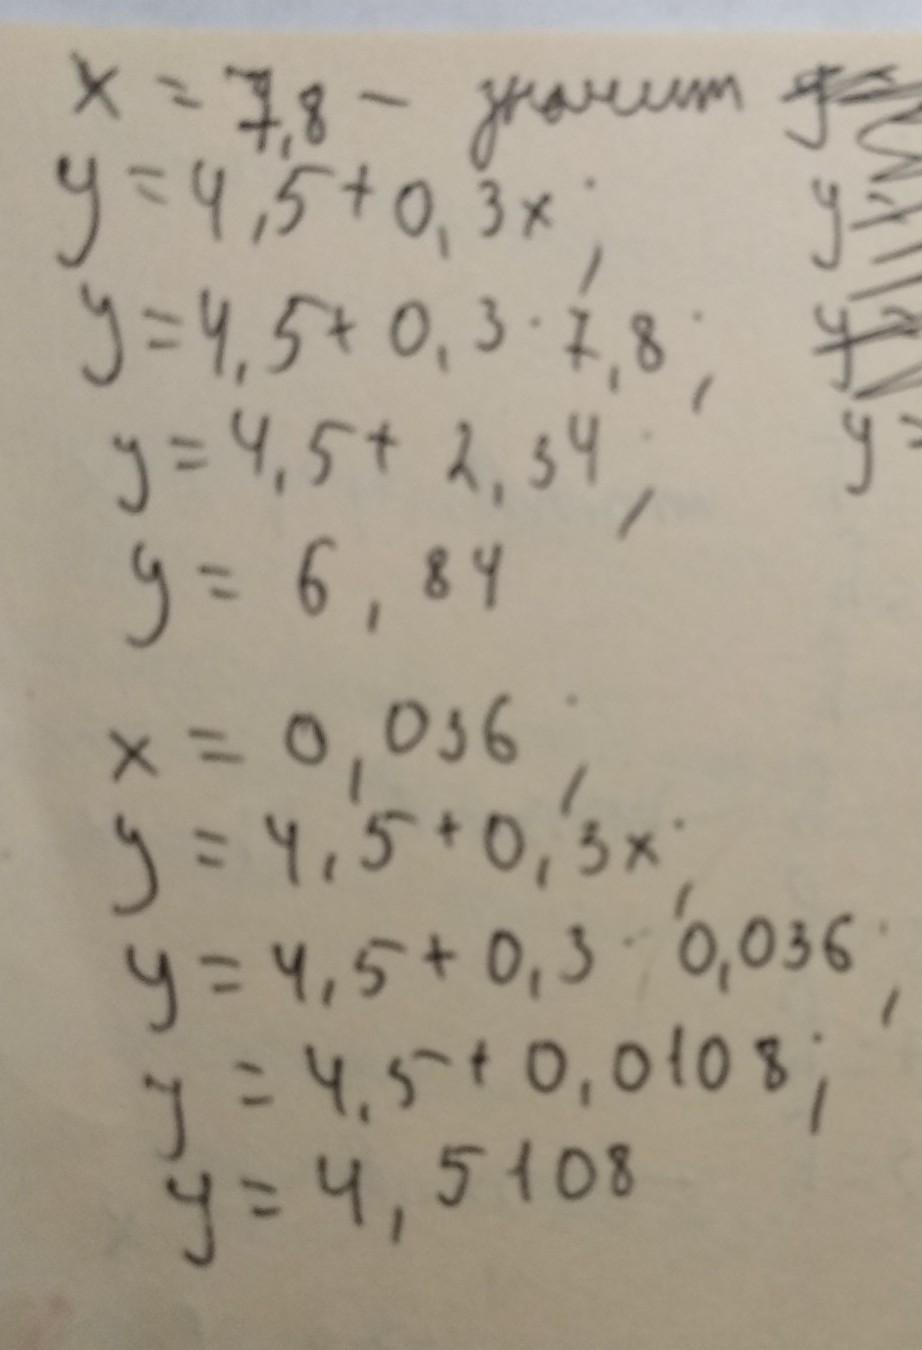 x = 7,8 – значит
y = 4,5 + 0,3x;
y = 4,5 + 0,3 · 7,8;
y = 4,5 + 2,34;
y = 6,84
x = 0,036;
y = 4,5 + 0,3x;
y = 4,5 + 0,3 · 0,036;
y = 4,5 + 0,0108;
y = 4,5108
y
y
y =